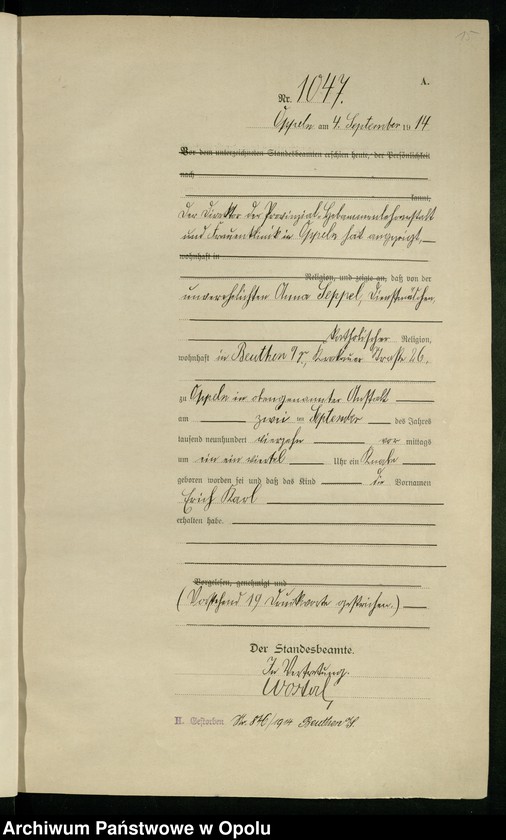 15
A.
Nr. 1047.
Oppeln am 4. September 1914
Vor dem unterzeichneten Standesbeamten erschien heute, der Persönlichkeit
nach
kannt,
Der Direktor der Provinzial-Hebammenlehranstalt
und Frauenklinik in Oppeln hat angezeigt,
wohnhaft in
Religion, und zeigte an, daß von der
unverehelichten Anna Seppel, Dienstmädchen,
katholischer Religion,
wohnhaft in Beuthen O/S, Krakauer Straße 26,
zu Oppeln in obengenannter Anstalt
am zwei ten September des Jahres
tausend neunhundert vierzehn vor mittags
um ein ein viertel Uhr ein Knabe
geboren worden sei und daß das Kind die Vornamen
Erich Karl
erhalten habe.
Vorgelesen, genehmigt und
(Vorstehend 19 Druckworte gestrichen.)
Der Standesbeamte.
In Vertretung
Wostal
H. Gestorben Nr. 846/1914 Beuthen O/S.
Archiwum Państwowe w Opolu